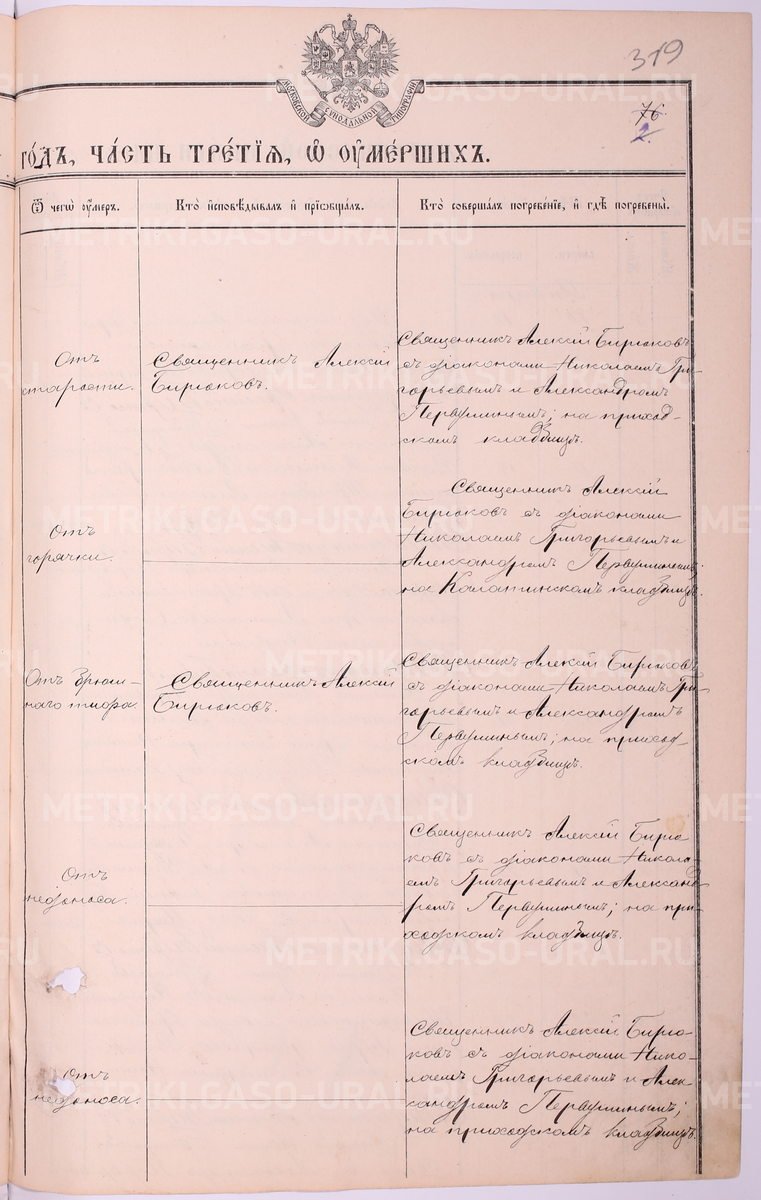 319
МОСКОВСКОЙ СѴНОДАЛЬНОЙ ТИПОГРАФІИ
76
2.
го́дъ, ча́сть тре́тїѧ, ѡ҆ ᲂу҆ме́ршихъ.
Ѿ чегѡ̀ ᲂу҆́меръ.
Кто̀ и҆сповѣ́дывалъ и҆ прїѡбща́лъ.
Кто̀ соверша́лъ погребе́нїе, и҆ гдѣ̀ погребены̀.
Отъ
старости.
Священникъ Алексій
Бирюковъ.
Священникъ Алексій Бирюковъ
съ діаконами Николаемъ Гри-
горьевымъ и Александромъ
Первушинымъ; на приход-
скомъ кладбищѣ.
Отъ
горячки.
Священникъ Алексій
Бирюковъ съ діаконами
Николаемъ Григорьевымъ и
Александромъ Первушинымъ;
на Калатинскомъ кладбищѣ.
Отъ брюш-
наго тифа.
Священникъ Алексій
Бирюковъ.
Священникъ Алексій Бирюковъ
съ діаконами Николаемъ Гри-
горьевымъ и Александромъ
Первушинымъ; на приход-
скомъ кладбищѣ.
Отъ
недоноса.
Священникъ Алексій Бирю-
ковъ съ діаконами Никола-
емъ Григорьевымъ и Алексан-
дромъ Первушинымъ; на при-
ходскомъ кладбищѣ.
Отъ
недоноса.
Священникъ Алексій Бирю-
ковъ съ діаконами Нико-
лаемъ Григорьевымъ и Алек-
сандромъ Первушинымъ;
на приходскомъ кладбищѣ.
METRIKI.GASO-URAL.RU